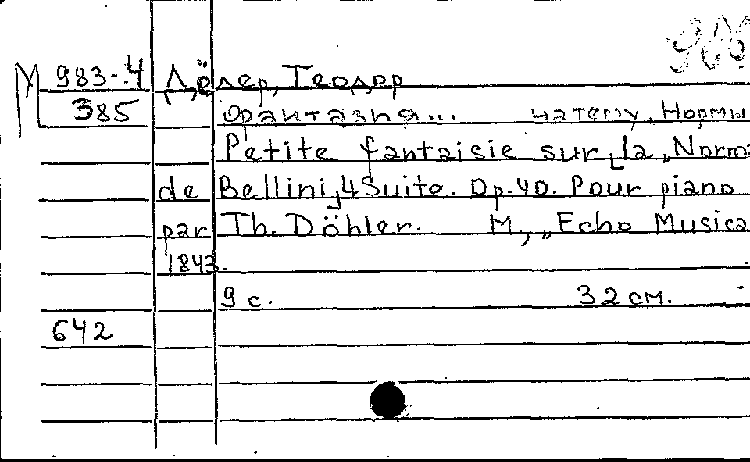 М 983-4 Дёлер, Теодор
385 Фантазия... на тему „Нормы
Petite fantaisie sur „la „Norma
de Bellini, 4 Suite. Op. 40. Pour piano
par Th. Döhler. M., „Echo Musica
1843.
9 с. 32 см.
642